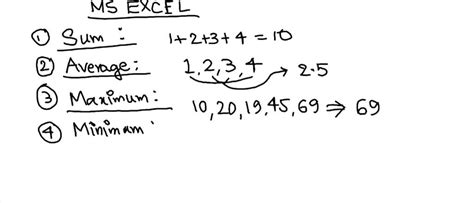 MS EXCEL
① Sum : 1+2+3+4 = 10
② Average: 1,2,3,4 → 2.5
③ Maximum: 10,20,19,45,69 ⇒ 69
④ Minimam :